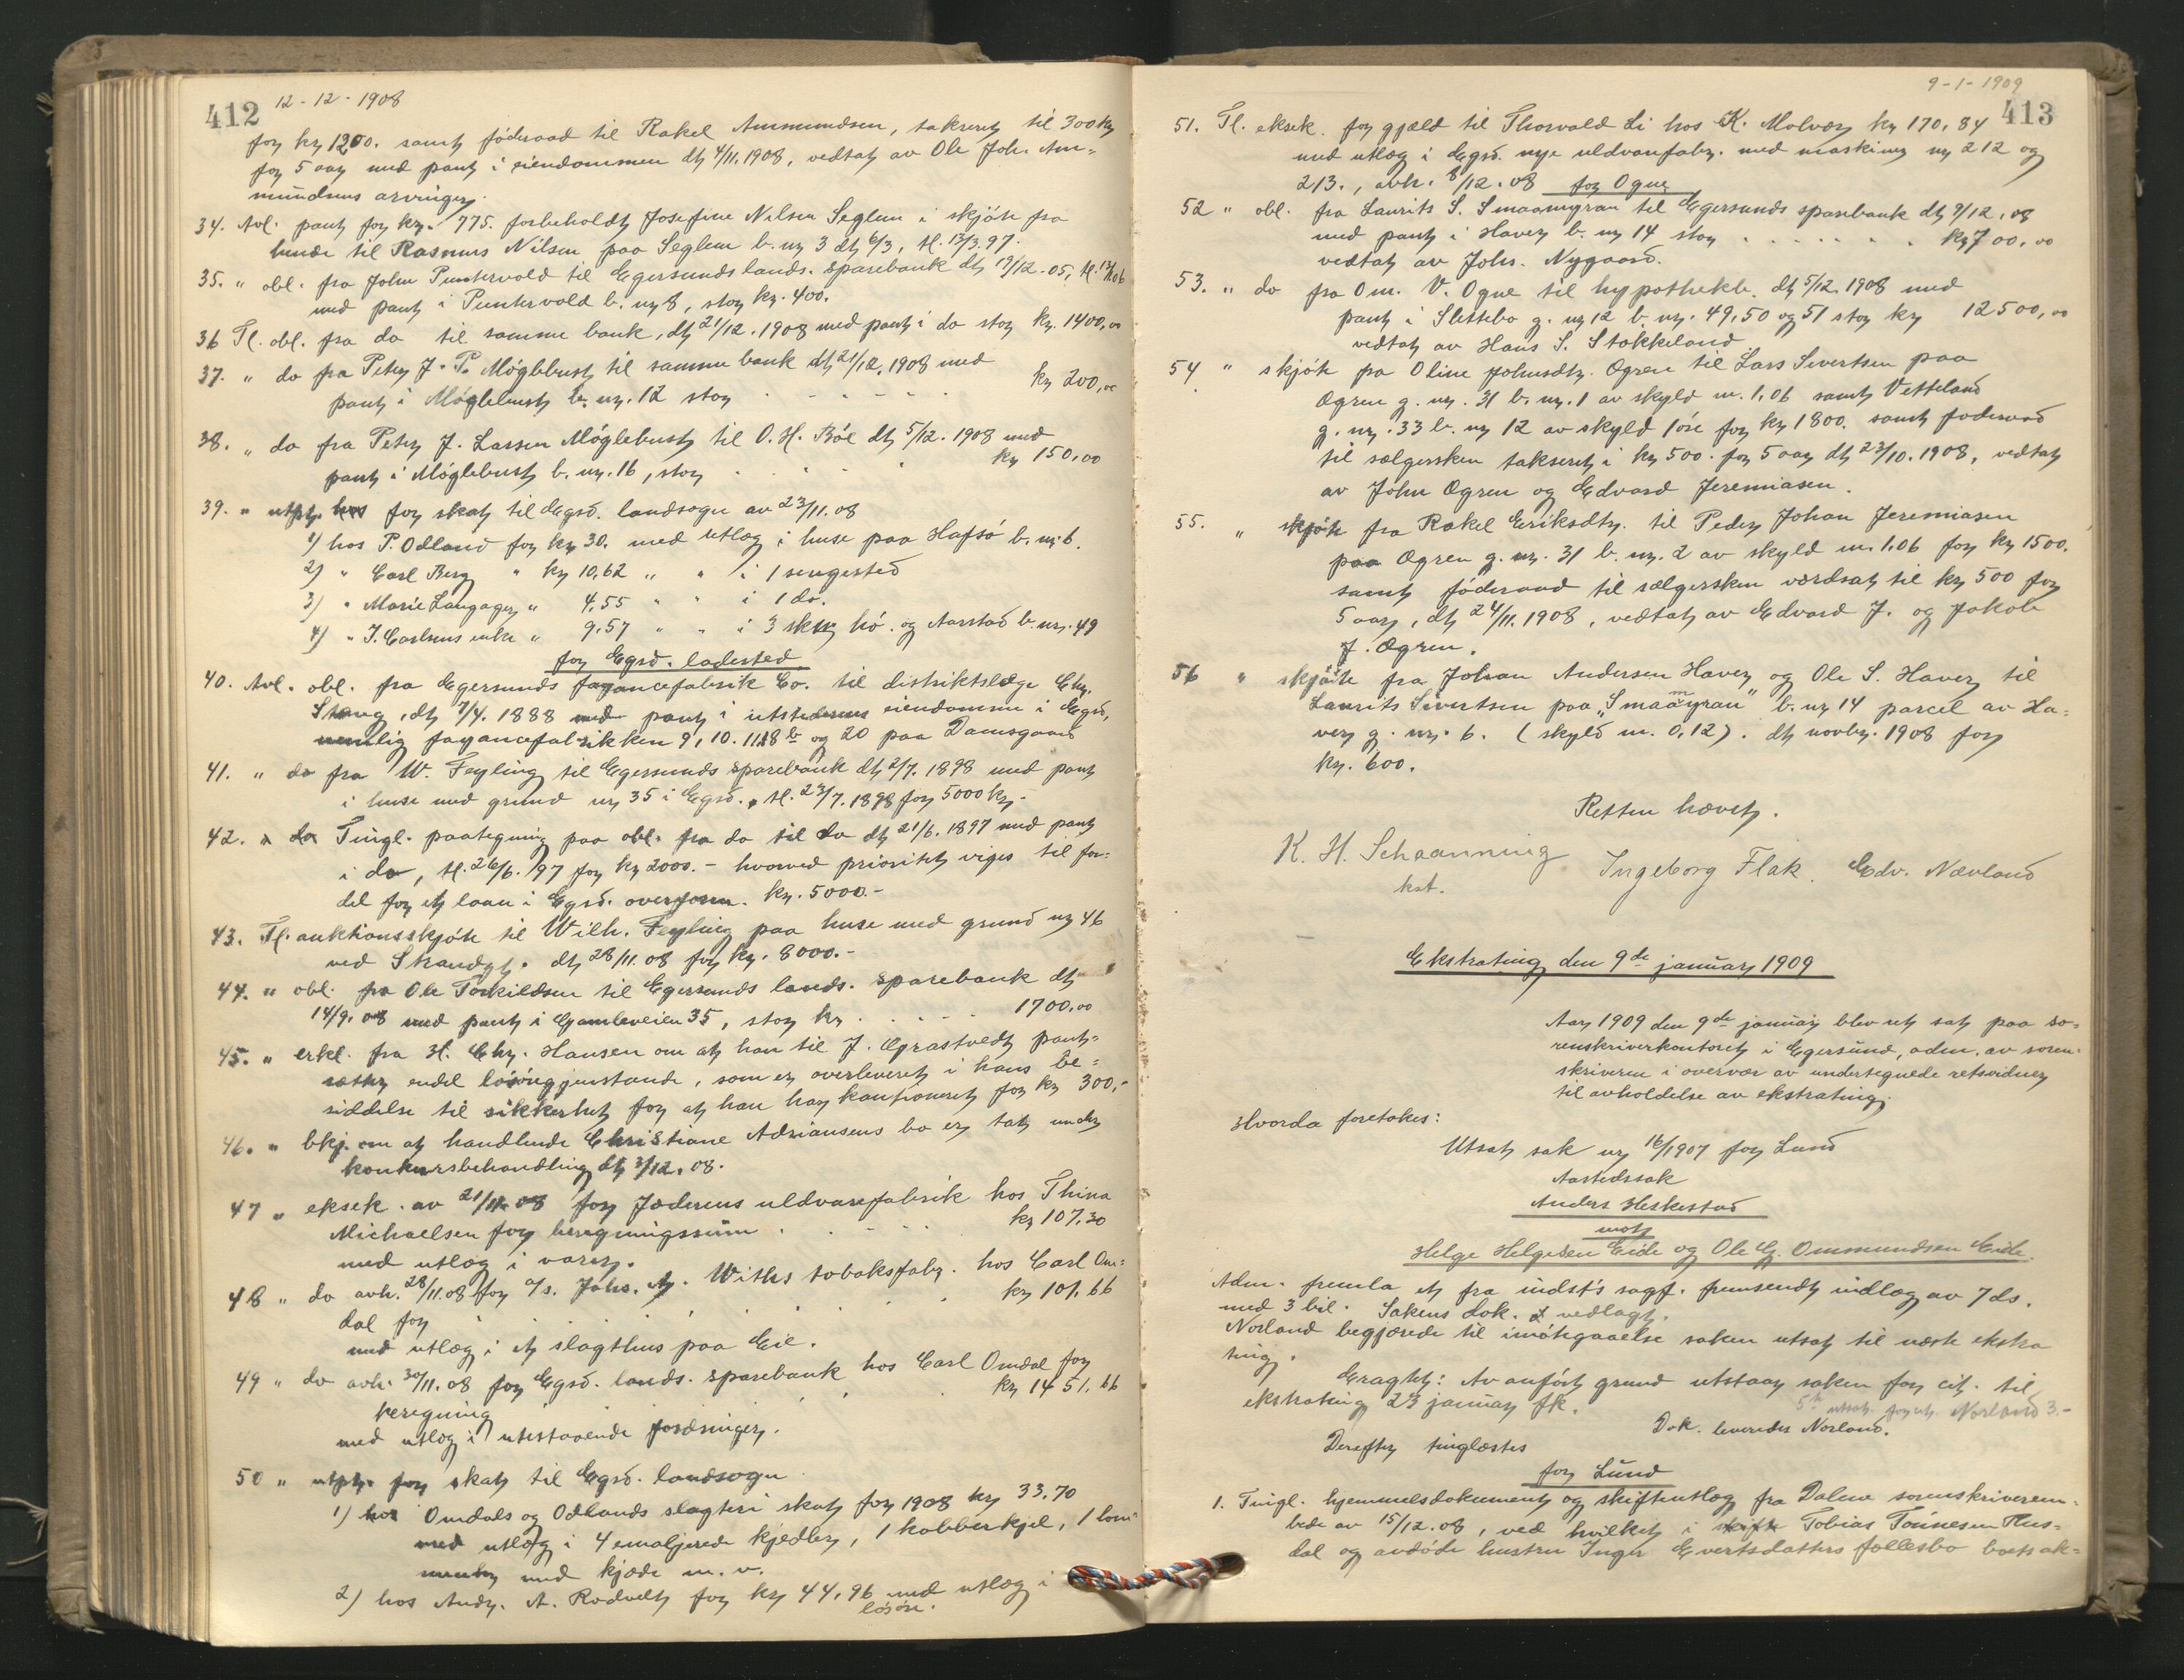 412
12-12-1908
for kr 1200. samt föderaad til Rakel Ammundsen, takseret til 300 kr
for 5 aar med pant i eiendommen dt 4/11. 1908, vedtat av Ole Joh. Am-
mundsens arvinger.
34. Avl. pant for kr. 775. forbeholdt Josefine Nilsen Seglem i skjöte fra
hende til Rasmus Nilsen paa Seglem b. nr 3 dt 6/3, tl. 13/3.97.
35. " obl. fra John Puntervold til Egersunds lands. sparebank dt 19/12.05, tl.
med pant i Puntervold b. nr 8, stor kr. 400.
36 Tl. obl. fra do til samme bank, dt 21/12. 1908 med pant i do stor kr. 1400,00
37. " do fra Peter J. P. Möglebust til samme bank dt 21/12. 1908 med
pant i Möglebust b. nr. 12 stor . . . . . kr 200,00
38. " do fra Peter J. Larsen Möglebust til O. H. Böe dt 5/12. 1908 med
pant i Möglebust b. nr. 16, stor . . . . kr 150,00
39. " utpt. for skat til Egsd. landsogn av 23/11.08
1) hos P. Odland for kr 30. med utlæg i huse paa Hafsö b. nr. 6.
2) " Carl Berg " kr 10,62 " " i 1 sengested
3) " Marie Langager " 4,55 " " i 1 do.
4) " J. Carlsens enke " 9,57 " " i 3 hö. og Aarstad b. nr. 49
for Egsd. ladested
40. Avl. obl. fra Egersunds fayancefabrik Co. til distriktslæge Chr.
Stang, dt 7/4. 1888 med pant i utstederens eiendomme i Egsd,
nemlig fayancefabrikken 9, 10. 11, 18 b og 20 paa Damsgaard
41. " do fra W. Feyling til Egersunds sparebank dt 2/7. 1898 med pant
i huse med grund nr 35 i Egsd., tl. 23/7. 1898 for 5000 kr.-
42. " do Tingl. paategning paa obl. fra do til do dt 21/6. 1897 med pant
i do, tl. 26/6. 97 for kr 2000.- hvorved prioritet viges til for-
del for et laan i Egsd. overform. kr. 5000.-
43. Tl. auktionsskjöte til Wilh. Feyling paa huse med grund nr 46
ved Strandgt. dt 28/11.08 for kr. 8000.-
44. " obl. fra Ole Torkildsen til Egersunds lands. sparebank dt
14/9.08 med pant i Gamleveien 35, stor kr . . . . 1700,00
45. " erkl. fra H. Chr. Hansen om at han til J. Ögrastvedt pant-
sætter endel lösöregjenstande, som er overleveret i hans be-
siddelse til sikkerhet for at han har kautioneret for kr 300,-
46. " bkj. om at handlende Christiane Adriansens bo er tat under
konkursbehandling dt 3/12.08.
47 " eksek. av 21/11.08 for Jæderens uldvarefabrik hos Thina
Michaelsen for beregningssum . . . . kr 107.30
med utlæg i varer.
48 " do avh. 28/11.08 for a/s. Johs. H. Withs tobaksfabr. hos Carl Om-
dal for . . . . . kr 101.66
med utlæg i et slagthus paa Eie.
49 " do avh. 30/11.08 for Egsd. lands. sparebank hos Carl Omdal for
beregning . . . kr 1451.66
med utlæg i utestaaende fordringer.
50 " utpt. for skat til Egsd. landsogn
1) hos Omdals og Odlands slagteri skat for 1908 kr 33.70
med utlæg i 4 emaljerede kjedler, 1 kobberkjel, 1 lom-
meur med kjæde m. v.
2) hos Andr. A. Rodvelt for kr 44,96 med utlæg i
lösöre.
9-1-1909
413
51. Tl. eksek. for gjæld til Thorvald Li hos K. Molvær kr 170,84
med utlæg i Egsd. nye uldvarefabr. med maskiner nr 212 og
213., avh. 8/12.08 for Ogne
52 " obl. fra Laurits S. Smaamyran til Egersunds sparebank dt 9/12.08
med pant i Haver b. nr 14 stor . . . . . . kr 700,00
vedtat av Johs. Nygaard.
53. " do fra Om. V. Ogne til hypothekb. dt 5/12. 1908 med
pant i Slettebo g. nr 12 b. nr. 49, 50 og 51 stor kr 12500,00
vedtat av Hans S. Stokkeland
54 " skjöte fra Oline Johnsdtr. Ögren til Lars Sivertsen paa
Ögren g. nr. 31 b. nr. 1 av skyld m. 1,06 samt Vetteland
g. nr. 33 b. nr 12 av skyld 1 öre for kr 1800. samt föderaad
til sælgersken takseret i kr 500. for 5 aar dt 23/10. 1908, vedtat
av John Ögren og Edvard Jeremiasen.
55. " skjöte fra Rakel Eriksdtr. til Peder Johan Jeremiasen
paa Ögren g. nr. 31 b. nr. 2 av skyld m. 1.06 for kr 1500.
samt föderaad til sælgersken værdsat til kr 500 for
5 aar, dt 24/11. 1908, vedtat av Edvard J. og Jakob
J. Ögren.
56 " skjöte fra Johan Andersen Haver og Ole S. Haver til
Laurits Sivertsen paa "Smaamyran" b. nr 14 parcel av Ha-
ver g. nr. 6. (skyld m. 0,12). dt novbr. 1908 for
kr. 600.
Retten hævet.
K. H. Schaanning Ingeborg Flak. Edv. Nævland
kst.
Ekstrating den 9de januar 1909
Aar 1909 den 9de januar blev ret sat paa so-
renskriverkontoret i Egersund, adm. av soren-
skriveren i overvær av undertegnede retsvidner
til avholdelse av ekstrating.
Hvorda foretokes:
Utsat sak nr 16/1907 for Lund
Aastedssak
Anders Heskestad
mot
Helge Helgesen Eide og Ole G. Ommundsen Eide.
Adm. fremla et fra indst's sagf. fremsendt indlæg av 7 ds.
med 3 bil. Sakens dok. vedlagt.
Norland begjærede til imötegaaelse saken utsat til næste ekstra
ting.
Eragtet: Av anfört grund utstaar saken for cit. til
ekstrating 23 januar fk.
5te utsat. for cit. Norland 3.-
Dok. leveredes Norland.
Derefter tinglæstes
for Lund
1. Tingl. hjemmelsdokument og skifteutlæg fra Dalene sorenskriverem-
bede av 15/12.08, ved hvilket i skifte Tobias Tönnesen Hus-
dal og avdöde hustru Inger Evertsdatters fællesbo boets ak-